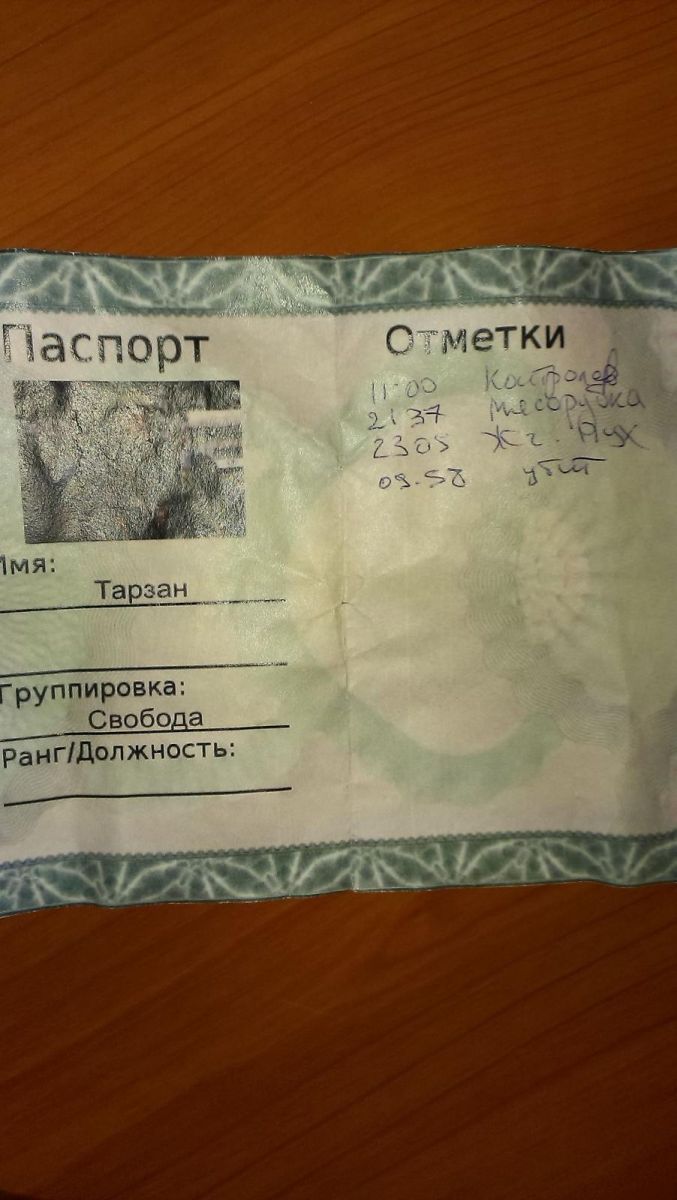 Паспорт
Имя:
Тарзан
Группировка:
Свобода
Ранг/Должность:
Отметки
11:00
21 37 мясорубка
23 05 Жг. Пух
09.58 убит